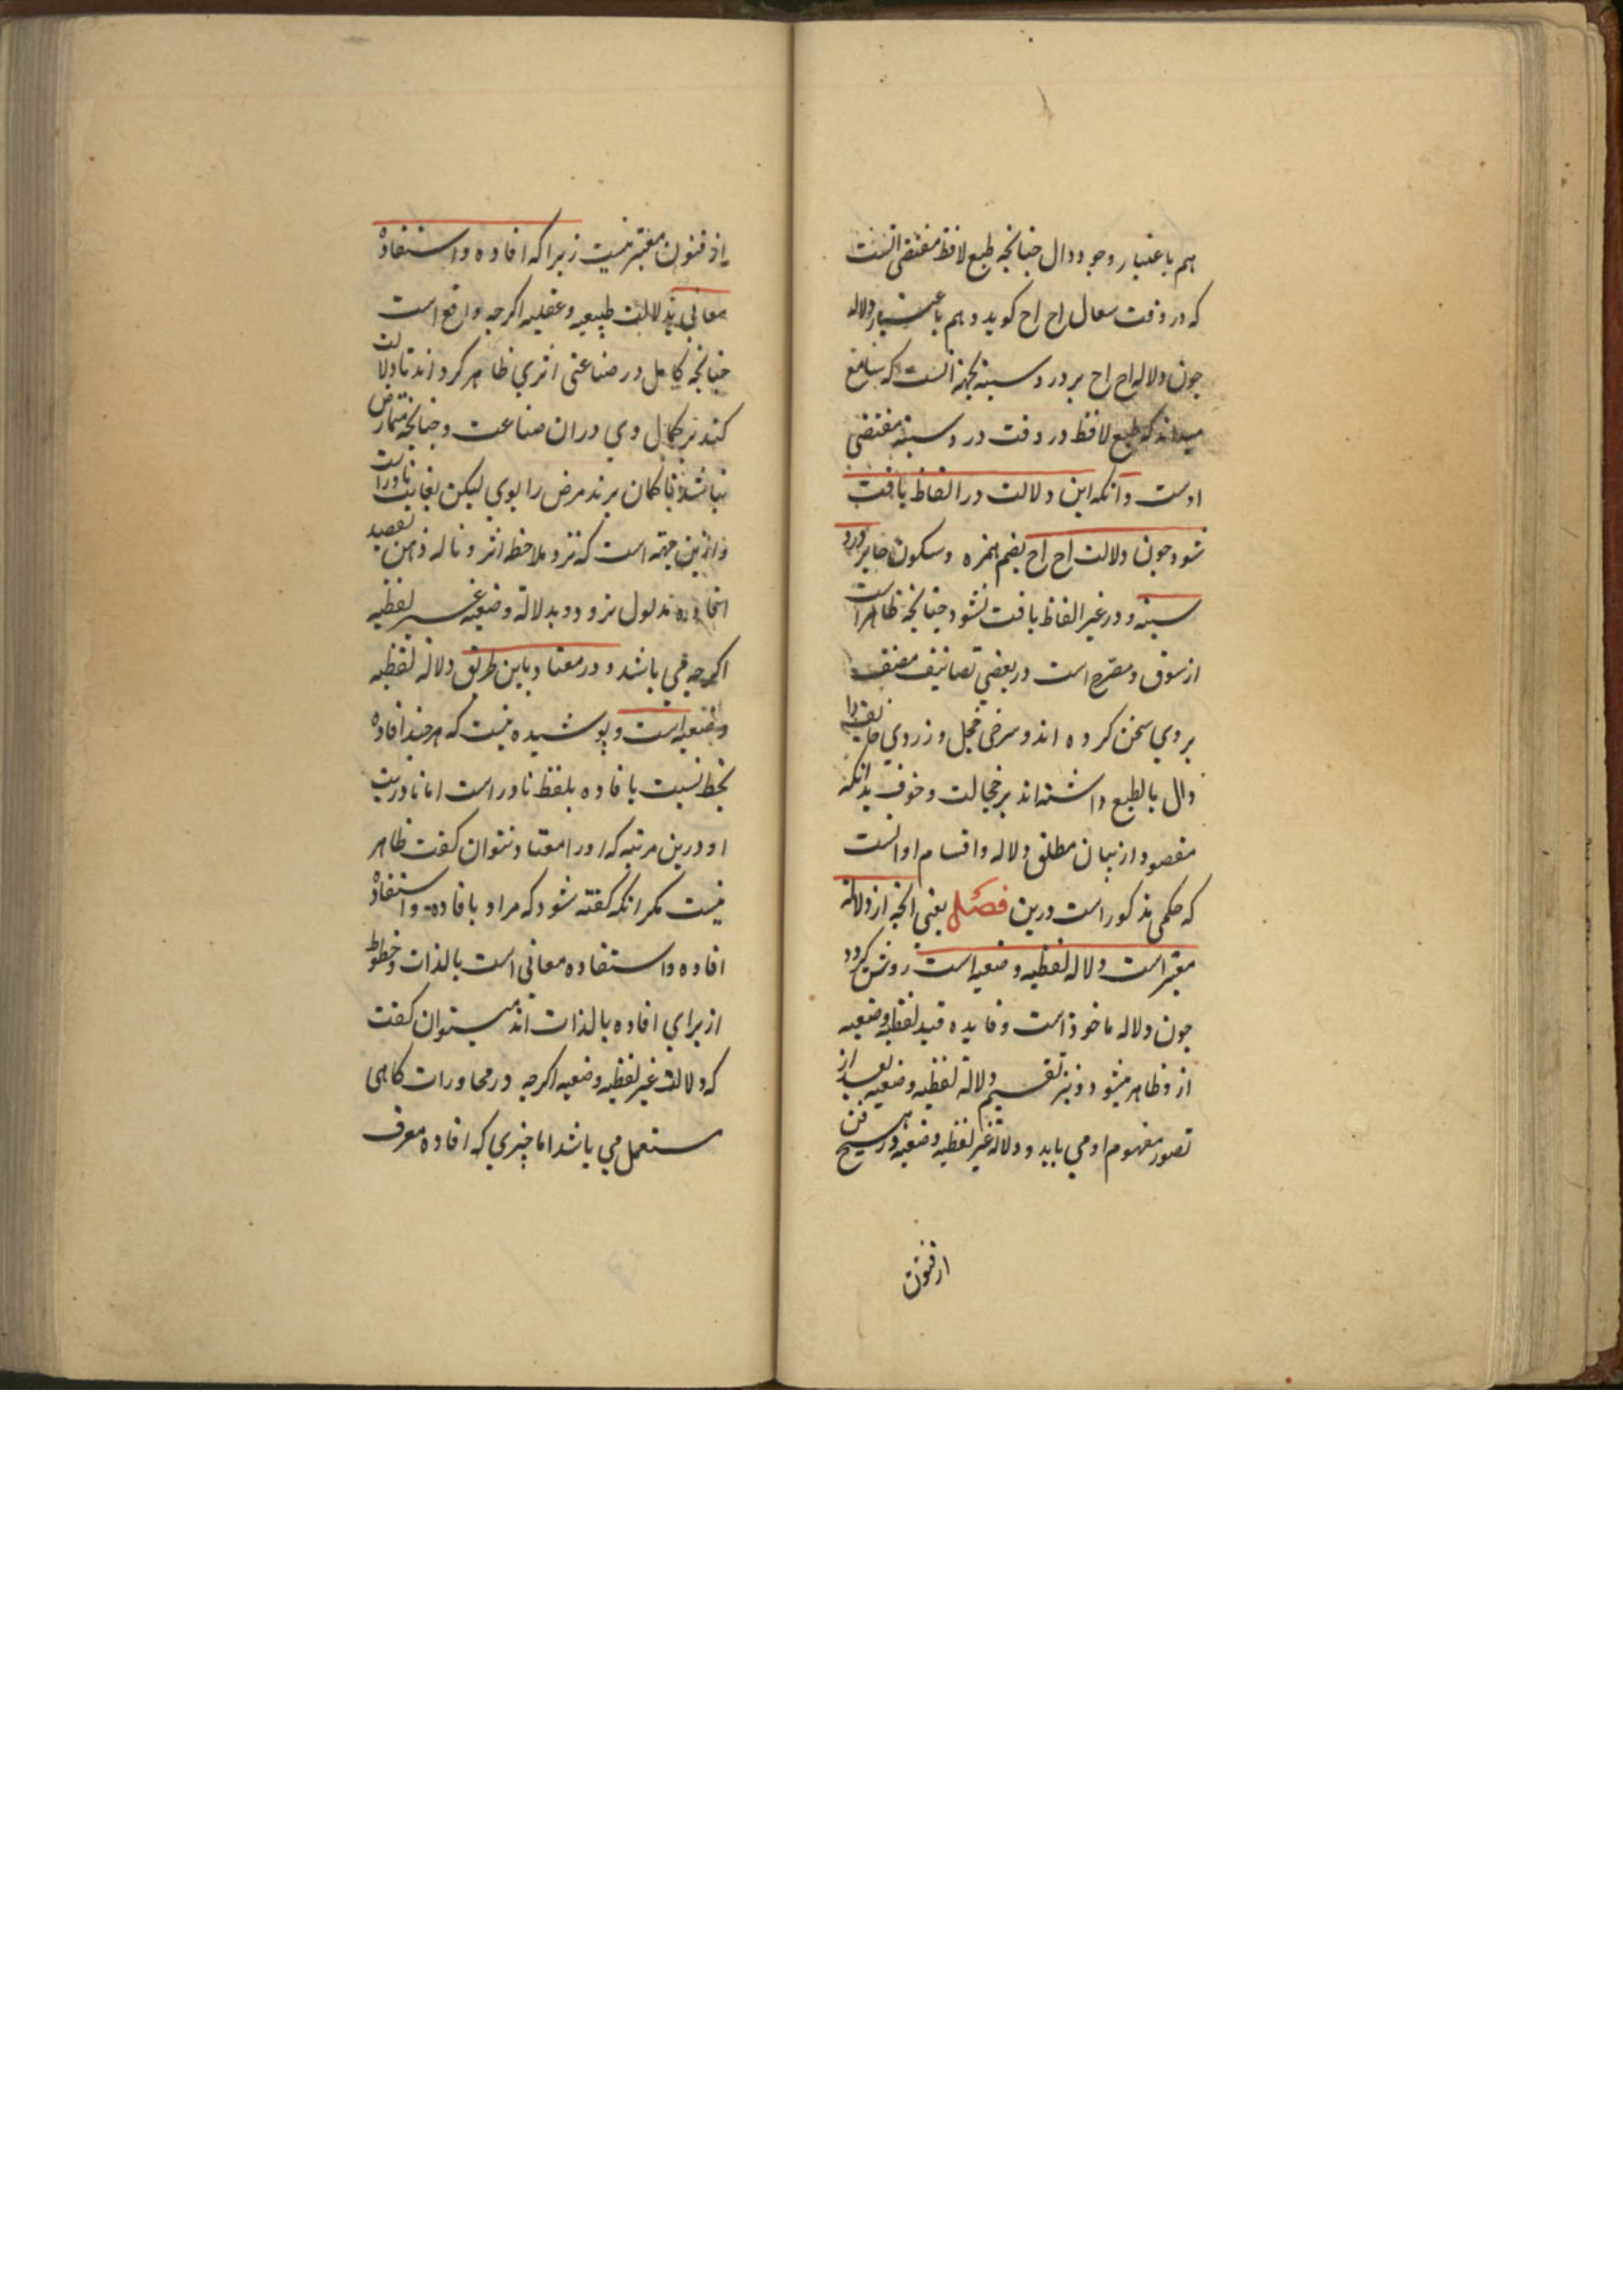 هم باعتبار وجود دال چنانچه طبع لافظ مقتضی انست
که در وقت سعال اح اح کوید و هم باعتبار دلاله
چون دلاله اح اح بر درد سینه بجهة انست که سامع
میداند که طبع لافظ در وقت درد سینه مقتضی
اوست و آنکه این دلالت در الفاظ یافت
شود چون دلالت اح اح بضم همزه و سکون حا بر درد
سینه و در غیر الفاظ یافت نشود چنانچه ظاهر است
از سوق و مصرح است در بعضی تصانیف مصنف
بروی سخن کرده اند و سرخی خجل و زردی خایف را
دال بالطبع داشته اند بر خجالت و خوف بدانکه
مقصود از بیان مطلق دلاله و اقسام او انست
که حکمی مذکور است درین فصل یعنی انچه از دلالة
معتبر است دلاله لفظیه وضعیه است روشن کردد
چون دلاله ماخوذ است و فایده قید لفظیه وضعیه
ازو ظاهر میشود و نیز تقسیم دلالة لفظیه وضعیه بعد از
تصور مفهوم او می باید و دلالة غیر لفظیه وضعیه در هیچ فن
از فنون
از فنون معتبر نیست زیرا که افاده و استفادة
معانی بدلالت طبیعیه و عقلیه اکرچه واقع است
چنانچه کامل در صناعتی اثری ظاهر کرداند تا دلالت
کند بر کمال وی در ان صناعت و چنانچه متمارض
نباشد تا کمان برند مرض را بوی لیکن بغایت نادر است
و ازین جهة است که نزد ملاحظه اثر و ناله ذهن بقصد
مدلول نرود و بدلالة وضعیه غیر لفظیه
اکرچه می باشد و در معتاد باین طریق دلالة لفظیه
وضعیه است و پوشیده نیست که هر چند افاده
بخط نسبت بافاده بلفظ نادر است اما نادریت
او درین مرتبه که اورا معتاد نتوان کفت ظاهر
نیست مکر انکه کفته شود که مراد بافاده و استفادة
افاده و استفاده معانی است بالذات و خطوط
از برای افاده بالذات اند میتوان کفت
که دلالت غیر لفظیه وضعیه اکرچه در محاورات کاهی
مستعمل می باشد اما چیزی که افاده معرف